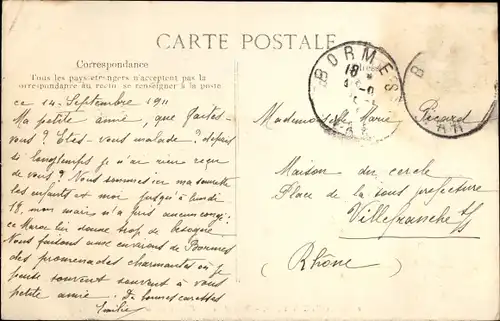 CARTE POSTALE
Correspondance
Tous les pays étrangers n'acceptent pas la
correspondance au recto se renseigner à la poste
ce 14 Septembre 1911
Ma petite amie, que faites-
vous ? Etes-vous malade ? depuis
si longtemps je n'ai rien reçu
de vous ? Nous sommes ici ma
les enfants et moi jusqu'à lundi
18, mon mari n'a pris aucun congé :
ce Maroc lui donne trop de besogne
Nous faisons aux environs de Bormes
des promenades charmantes où je
pense souvent souvent à vous
petite amie. De bonnes caresses
Emilie
BORMES
18
B
VAR
Mademoiselle Marie Picard
Maison du cercle
Place de la sous préfecture
Villefranche s/S
(Rhône)